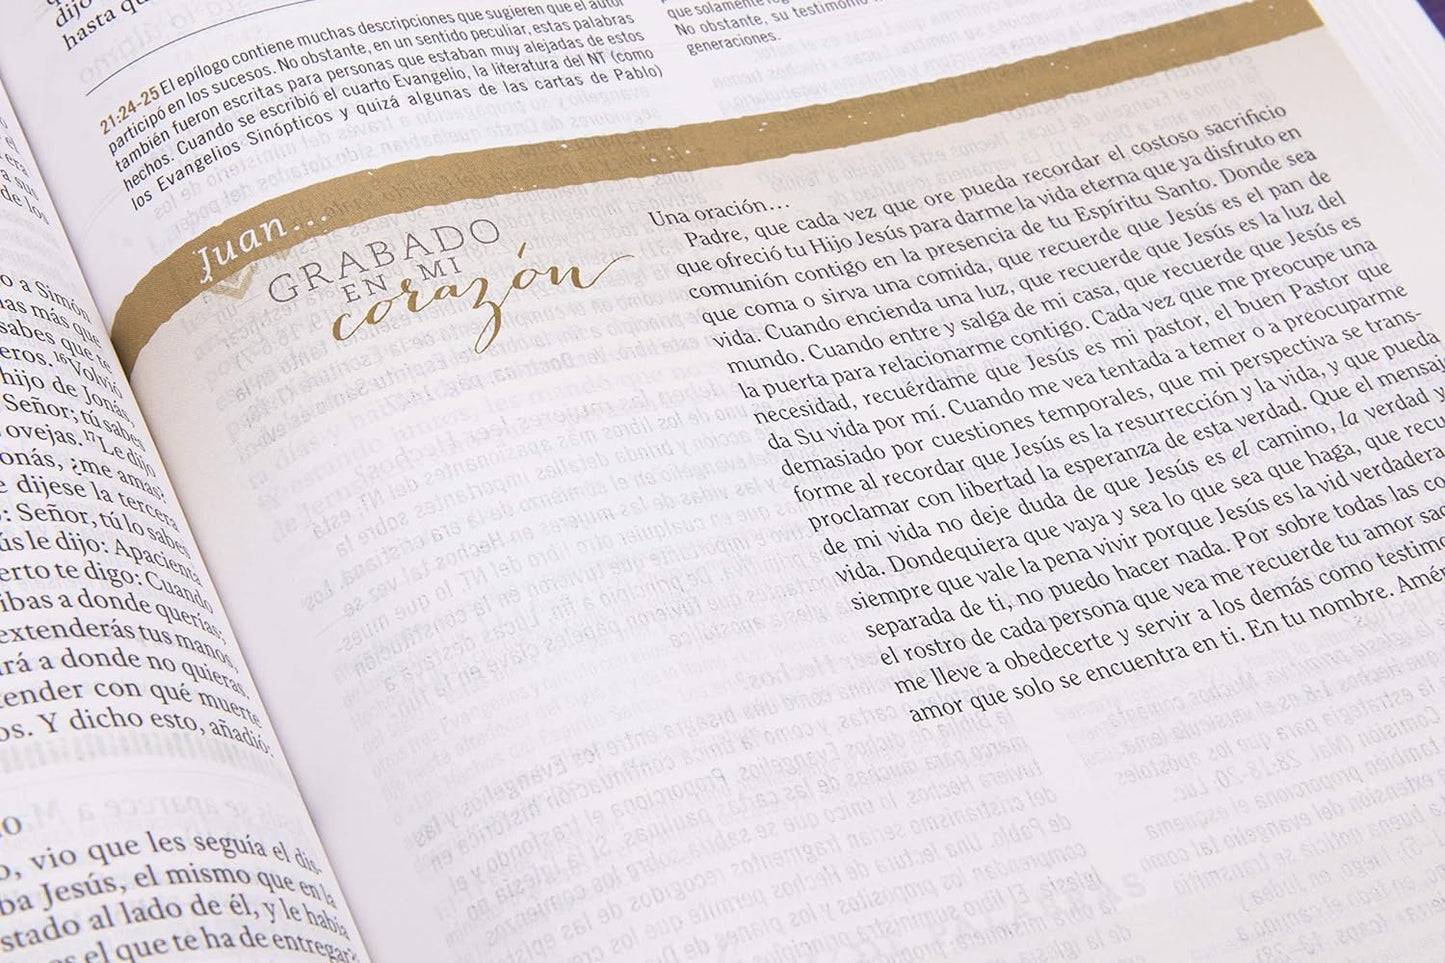 dijo
hasta qu
a sus
de los
o a Simón
más que
sabes que te
16Volvió
hijo de Jonás,
Señor; tú sabes
ovejas. 17Le dijo
onás, ¿me amas?
e dijese la tercera
: Señor, tú lo sabes
ús le dijo: Apacienta
erto te digo: Cuando
ibas a donde querías;
extenderás tus manos,
irá a donde no quieras.
tender con qué muerte
os. Y dicho esto, añadió:
o, vio que les seguía el dis-
ba Jesús, el mismo que en la
stado al lado de él, y le había
es el que te ha de entregar?
21:24-25 El epílogo contiene muchas descripciones que sugieren que el autor
participó en los sucesos. No obstante, en un sentido peculiar, estas palabras
también fueron escritas para personas que estaban muy alejadas de estos
hechos. Cuando se escribió el cuarto Evangelio, la literatura del NT (como
los Evangelios Sinópticos y quizá algunas de las cartas de Pablo)
que solamente
No obstante, su testimonio
generaciones.
Juan...
GRABADO
EN MI
corazón
Una oración...
Padre, que cada vez que ore pueda recordar el costoso sacrificio
que ofreció tu Hijo Jesús para darme la vida eterna que ya disfruto en
comunión contigo en la presencia de tu Espíritu Santo. Donde sea
que coma o sirva una comida, que recuerde que Jesús es el pan de
vida. Cuando encienda una luz, que recuerde que Jesús es la luz del
mundo. Cuando entre y salga de mi casa, que recuerde que Jesús es
la puerta para relacionarme contigo. Cada vez que me preocupe una
necesidad, recuérdame que Jesús es mi pastor, el buen Pastor que
da Su vida por mí. Cuando me vea tentada a temer o a preocuparme
demasiado por cuestiones temporales, que mi perspectiva se trans-
forme al recordar que Jesús es la resurrección y la vida, y que pueda
proclamar con libertad la esperanza de esta verdad. Que el mensaj
de mi vida no deje duda de que Jesús es el camino, la verdad y
vida. Dondequiera que vaya y sea lo que sea que haga, que recu
siempre que vale la pena vivir porque Jesús es la vid verdadera
separada de ti, no puedo hacer nada. Por sobre todas las co
el rostro de cada persona que vea me recuerde tu amor sac
me lleve a obedecerte y servir a los demás como testimo
amor que solo se encuentra en ti. En tu nombre. Amén